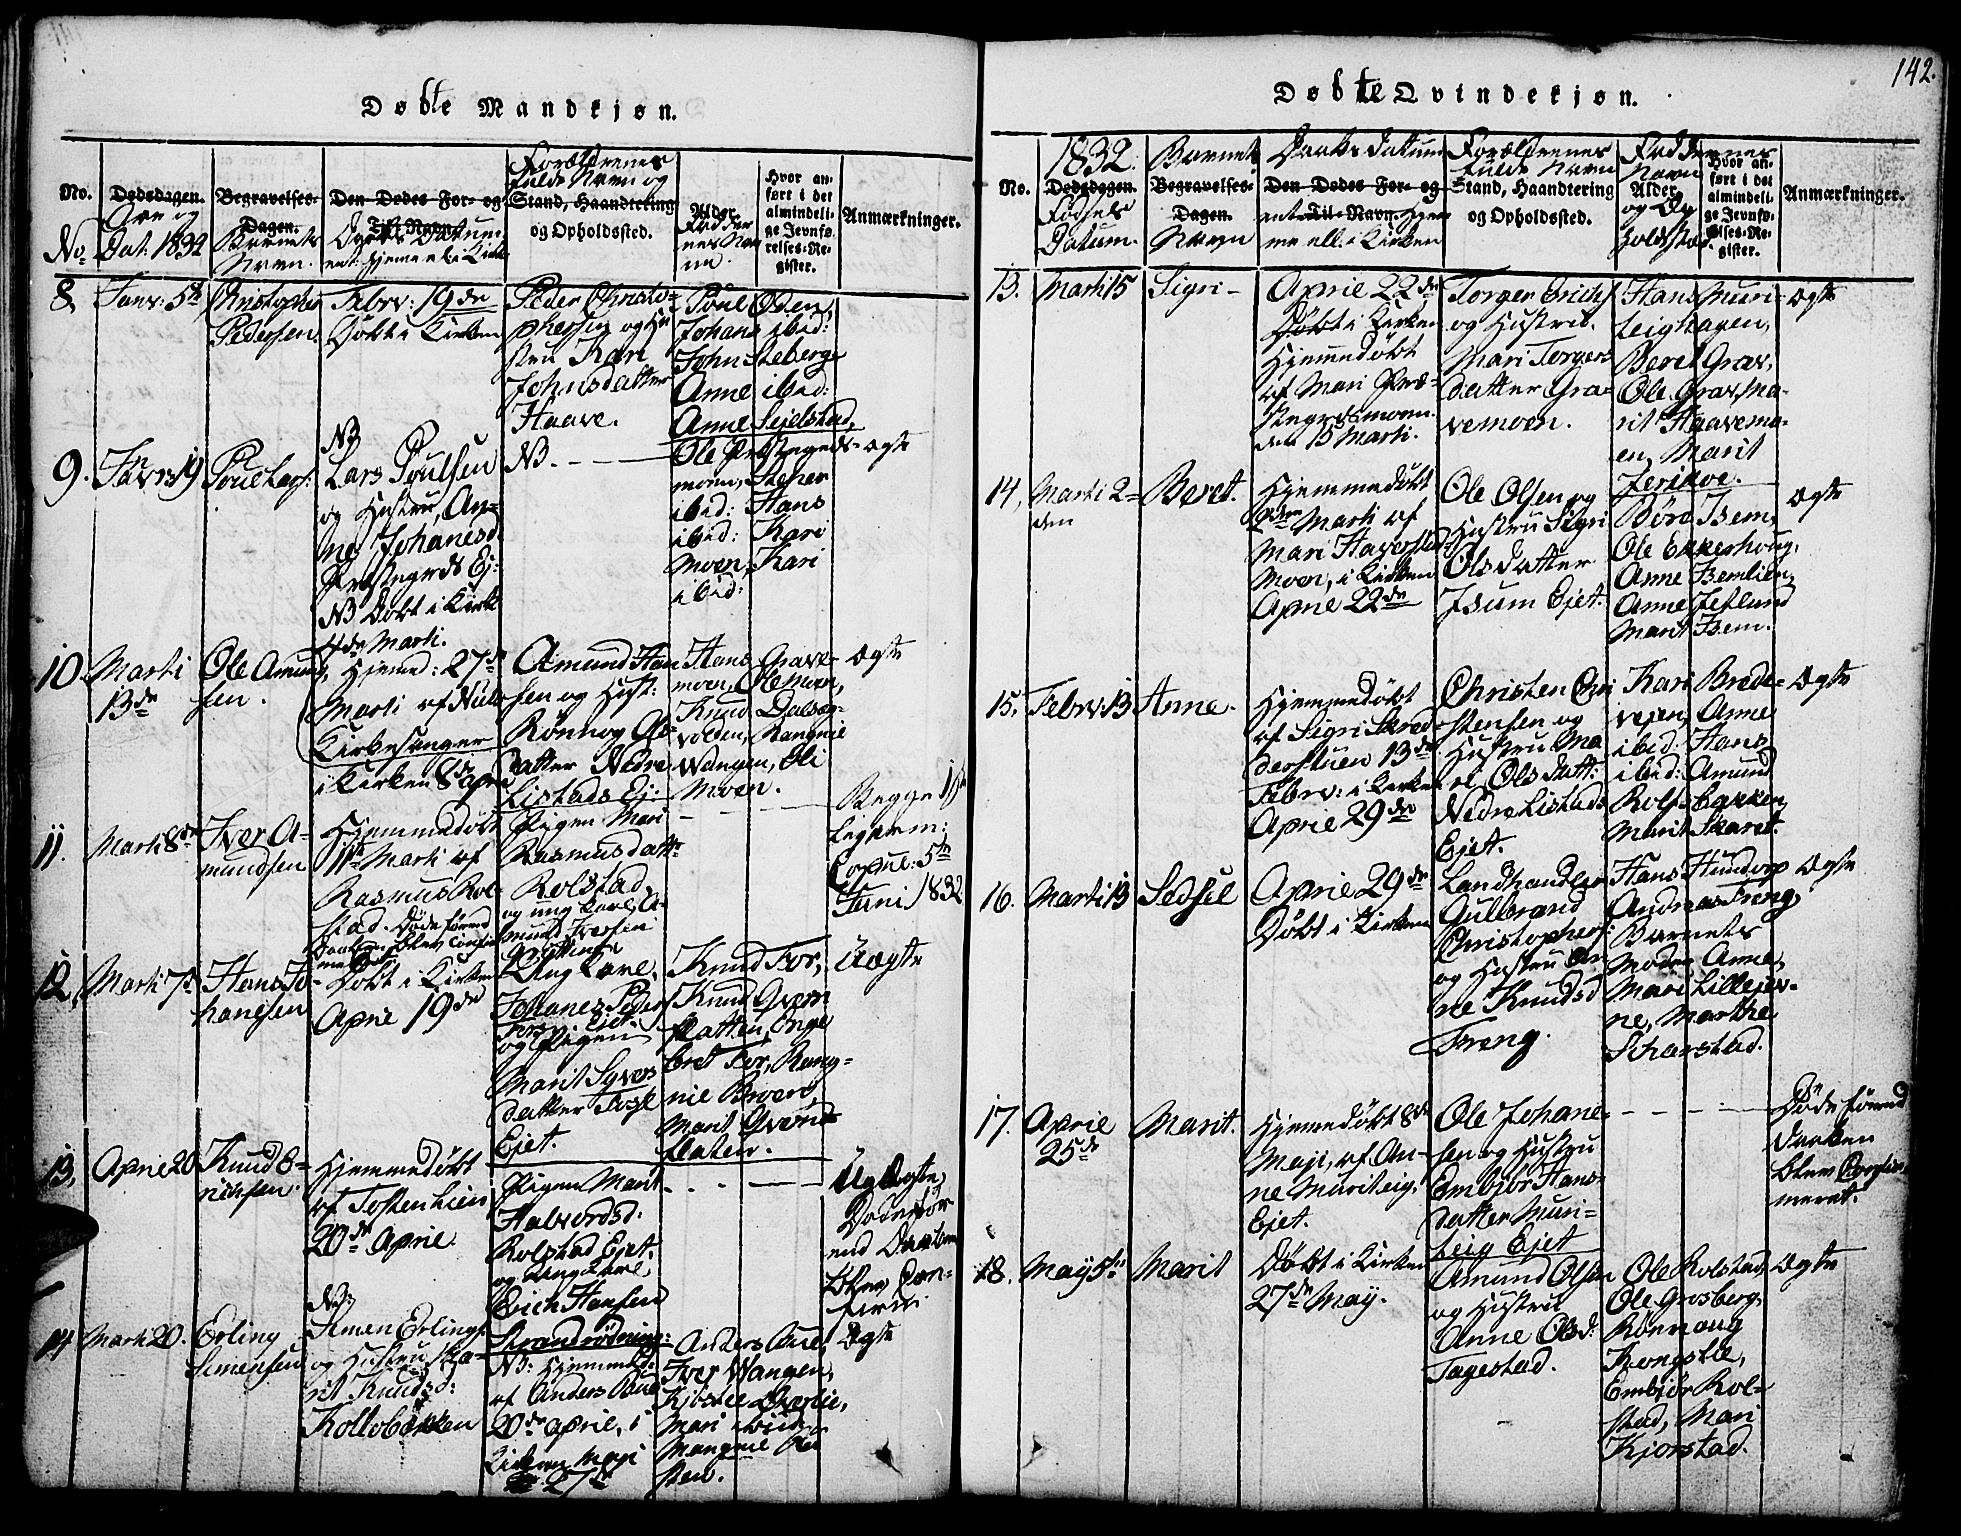 Døbte Mandkjøn.
No.
Dødsdagen.
Begravelses-
Dagen.
Den Dødes For- og
Til-Navn.
Forældrenes
fulde Navn og
Stand, Haandtering
og Opholdssted.
Alder.
Hvor an-
ført i det
almindeli-
ge Jevnfø-
relses-Re-
gister.
Anmærkninger.
No
Dat: 1832
Barnets
Navn.
8
Janv: 5te
Christopher
Pedersen
Febrv: 19de
Døbt i Kirken
Peder Christo-
phersen og Hu
stru Kari
Johnsdatter
Haave.
Poul Øden,
Johans ibid:
John Steberge
Anne ibid:
Anne Sejelstad,
9.
Janv 19
Poul Lars:
NB
Lars Poulsen
og Hustru, An-
ne Johanesd
Præstegrds Ej:
NB Døbt i Kirk
4de Marti.
NB.
Ole Præstegrds-
moen, Stener
ibid: Hans
ibid: Kari
Moen, Kari
ibid:
Ægte
10
Marti
13de
Ole Amund
sen.
Hjemed: 27de
Marti af
Kirkesanger
i Kirken 8de Apre
Amund Han
sen og Hust:
Rønnog Ols
datter Nedre
Listads Ej:
Hans Grave-
moen, Ole Moen,
Knud Dalseg-
volden, Rangnie
Wangen, Eli
Moen.
Ægte
11.
Marti 8de
Iver A-
mundsen
Hjemmedøbt
11te Marti af
Rasmus Rol-
stad. Døde førend
Daaben blev confir
meret
Pigen Mari
Rasmusdatt:
Rolstad
og ung Karl, A-
mund Iversen
Begge
Copul: 5te
Juni 1832
12
Marti 7de
Hans Jo-
hansen
Døbt i Kirken
April 19de
Ung Karl
Johanes Peders
Ejet
og Pigen
Marit Syvers
datter
Ejet.
Knud For,
Knud Qvern
flatten, Enge
bret For, Rang-
nie Broen,
Marit Qværne
flaten.
Uægte
13,
April 20
Knud E-
richsen.
Hjemmedøbt
af Tosten Lien
20de April
Pigen Marit
Halvordsd:
Rolstad Ejet.
og Ung Karl,
Erich Hansen
Strandrødning:
Uægte,
Døde før-
end Daaben
blev Con-
firm.
14
Marti 20.
Erling
Simensen
NB:
Simen Erlings
og Hustru, Ma-
rit Knudsd:
Kollobakken
NB: Hjemmed:
af Anders Bue
20de April, i
Kirken Maji
27de
Anders Bue,
Iver Wangen,
Kjøstel Øverlie,
Mari ibid:
Mangnil Rø
sten.
Ægte
142.
Døbte Qvindekjøn.
No.
1832.
Dødsdagen.
Fødsels
Datum.
Barnets
Begravelses-
Dagen.
Navn
Daabs Datum
Den Dødes For- og
ent Til-Navn. Hjem
me ell: i Kirken
Forældrenes
fulde Navn
Stand, Haandtering
og Opholdssted.
Faddernes
Navn
Alder
og Op
holdsted
Hvor an-
ført i det
almindeli-
ge Jevnfø-
relses-Re-
gister.
Anmærkninger.
13.
Marti 15
Sigri-
April 22de
Døbt i Kirken
Hjemmedøbt
af Mari Præ-
stegrdsmoen
den 15 Marti.
Torger Erichs
og Hustrue.
Mari Torgers
datter Gra-
vemoen.
Hans Muri-
leighagen,
Beret Grav,
Ole Grav, Ma-
rit Haavemo-
en, Marit
Jerikoe.
Ægte
14,
Marti 2-
den
Beret.
Hjemmedøbt
2den Marti af
Mari Haverstad
Moen, i Kirken
April 22de
Ole Olsen og
Hustru Sigri
Olsdatter
Isum Ejet.
Børe Isem,
Ole Ekkerhoug,
Anne Isemlien,
Anne Jetlund
Marit Isem.
Ægte
15.
Febrv: 13
Anne.
Hjemmedøbt
af Sigri Skred
derstuen 13de
Febrv: i Kirken
April 29de
Christen Chri
stensen og
Hustru Ma
ri Olsdatt:
Nedre Listads
Ejet.
Kari Brede-
vejen, Anne
ibid: Hans
ibid: Amund
Rolfsbakken
Marit Skaret.
Ægte
16.
Marti 13
Sedsel
April 29de
Døbt i Kirken
Landhandler
Gulbrand
Christophers:
og Hustru An
ne Knudsd
Freng.
Hans Hundorp
Andreas Freng,
Barnets
Moder Anne,
Mari Lillejer-
ne, Marthe
Scharstad.
Ægte
17.
April
25de
Marit.
Hjemedøbt 8de
Maji, af An-
ne Murileig,
Ejet.
Ole Johane-
sen og Hustru
Embjør Hans-
datter Muri-
leig Ejet
Døde førend
Daaben
blev Confir
meret.
18.
May 5te
Marit
Døbt i Kirken
27de May.
Amund Olsen
og Hustru
Anne Olsd:
Tagestad.
Ole Rolstad,
Ole Grosberg,
Rønnaug
Kongslie,
Embjør Rol-
stad, Mari
Kjorstad.
Ægte